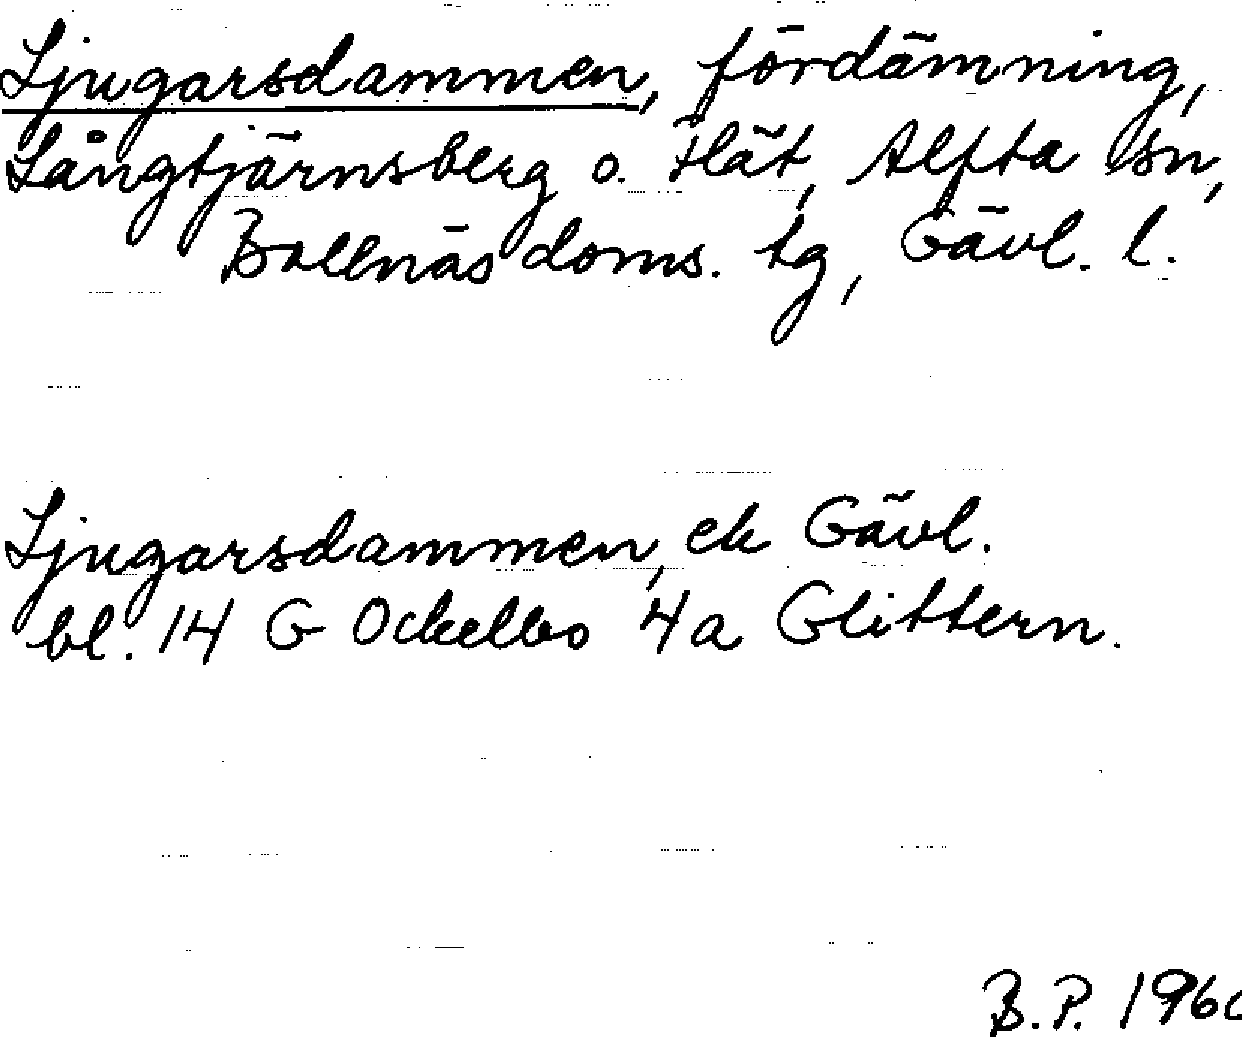 Ljugarsdammen, fördämning,
Långtjärnsberg o. Flät, Alfta sn,
Bollnäs doms. tg, Gävl. l.
Ljugarsdammen, ek Gävl.
bl. 14 G Ockelbo 4a Glittern.
B.P. 196